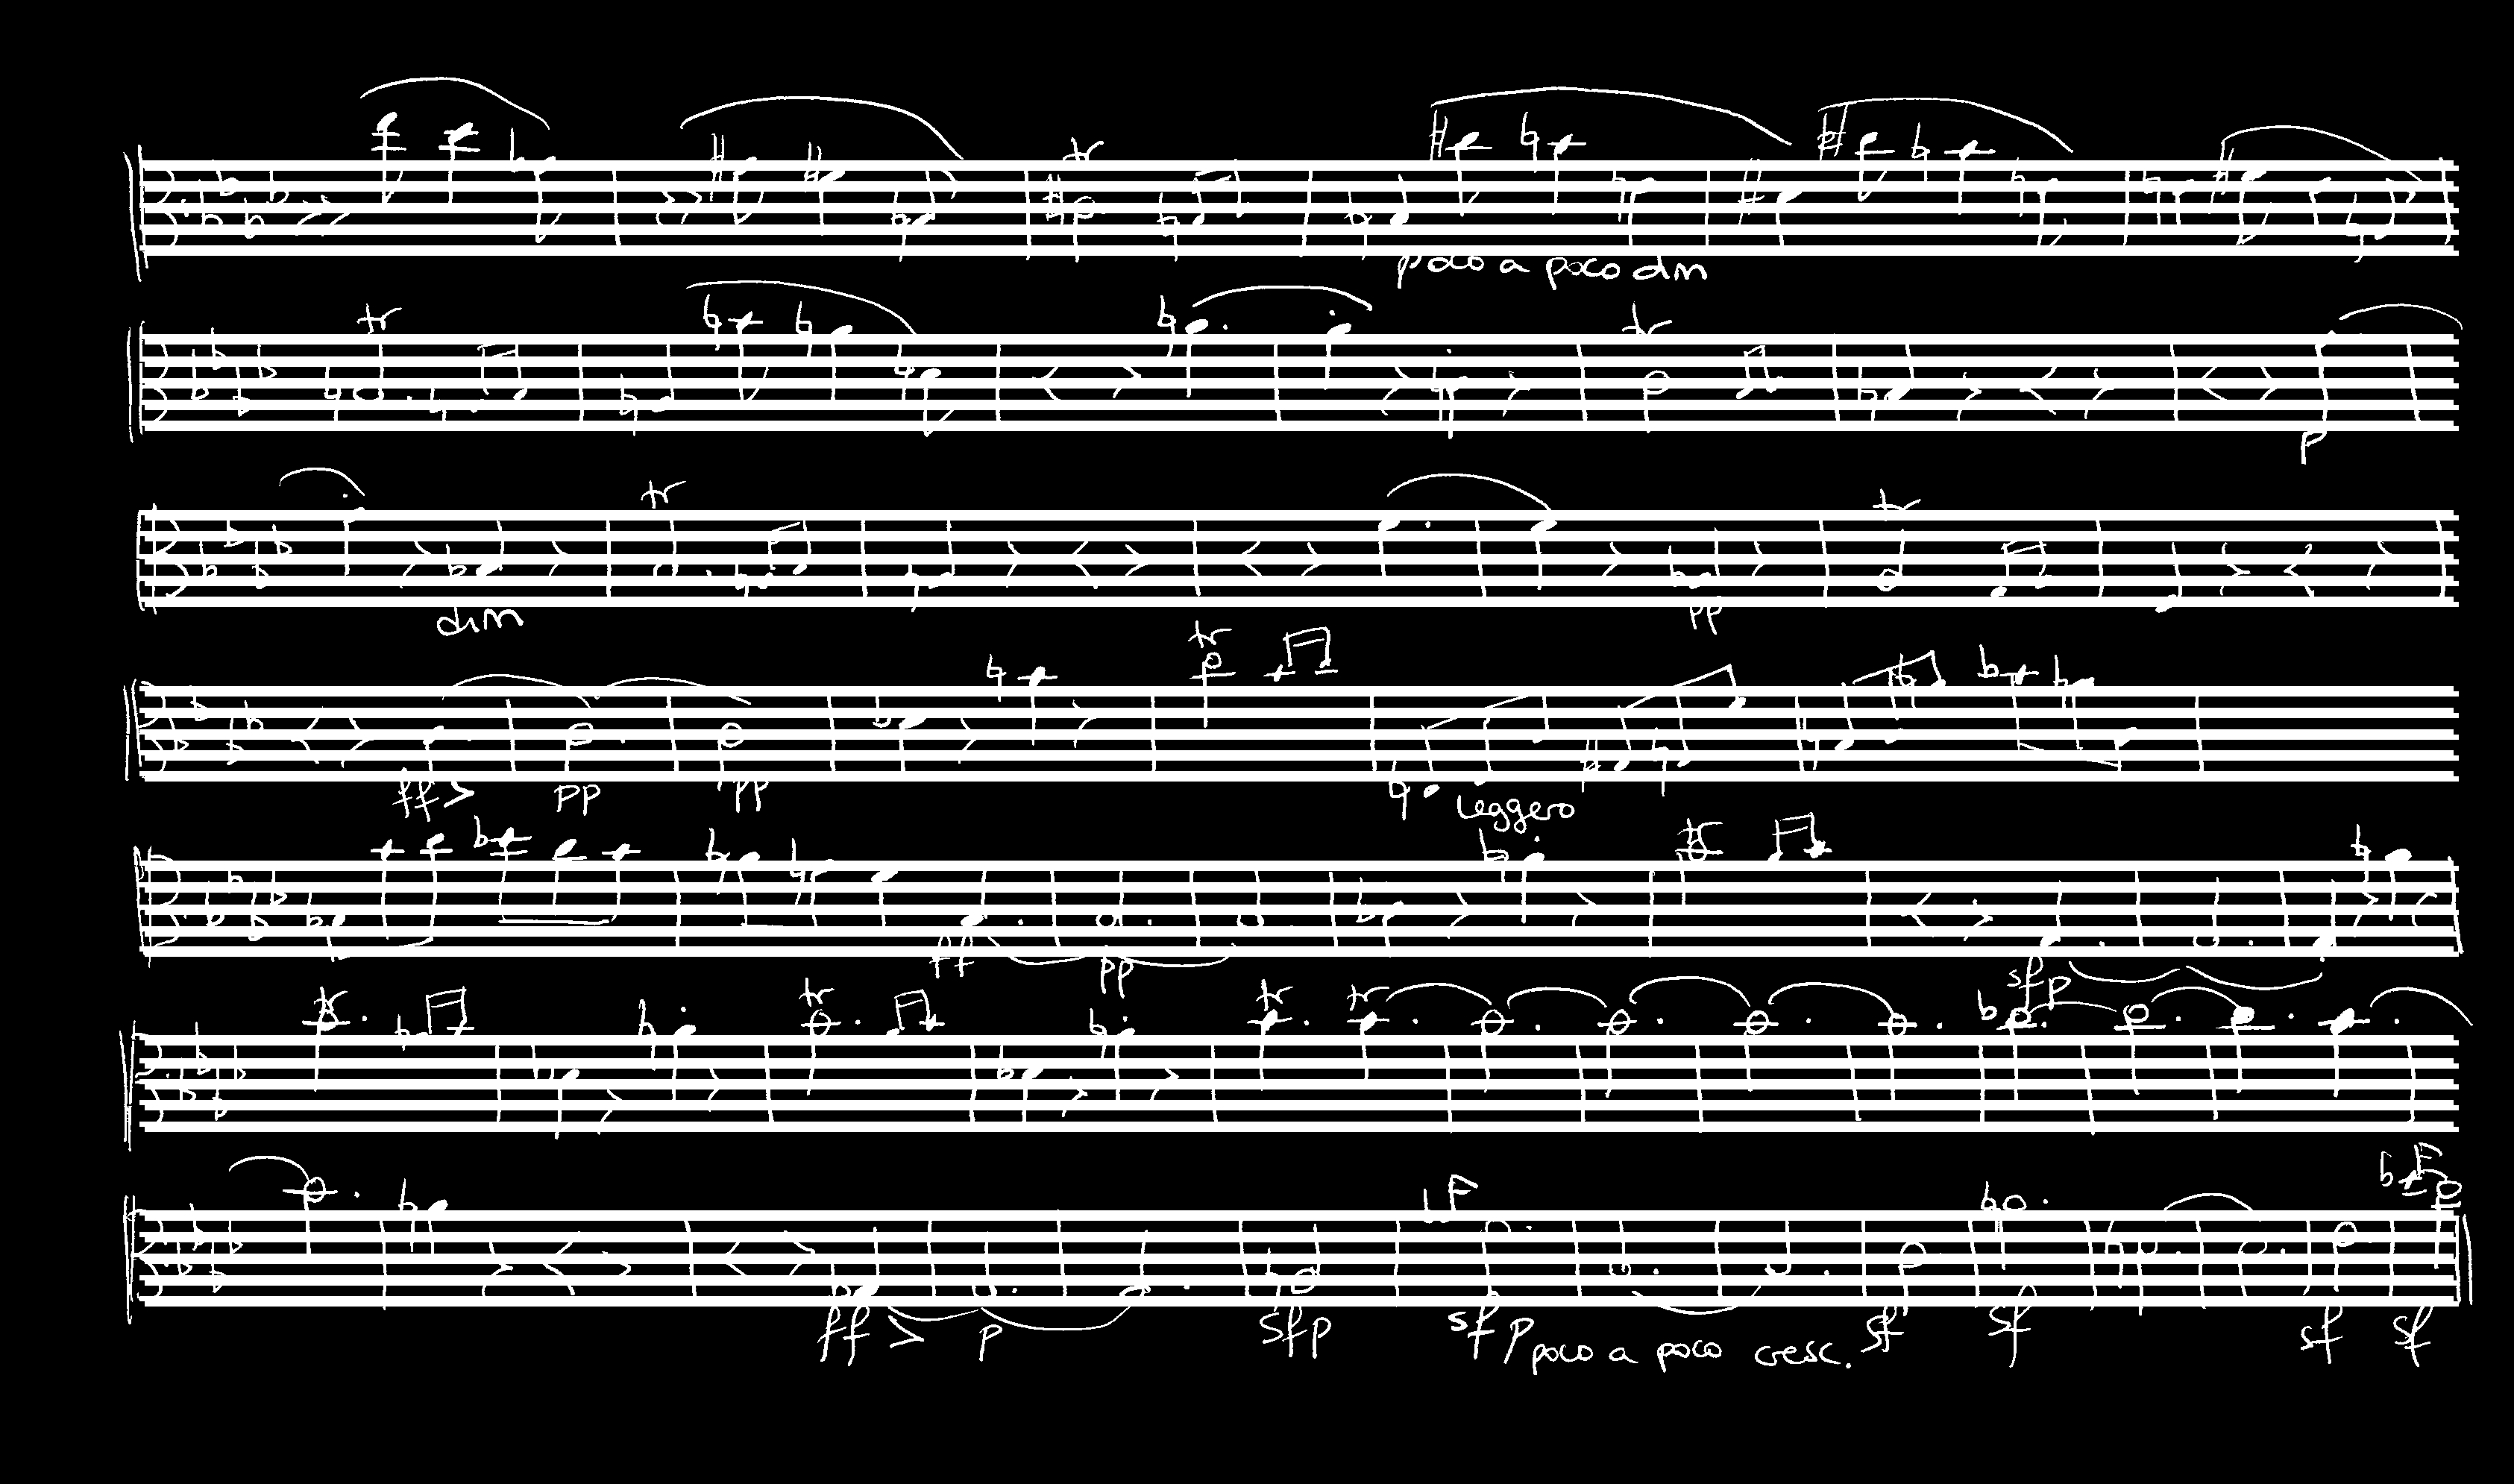 tr
poco a poco dim
tr tr
p
tr tr
dim pp
tr
ff > pp pp leggero
tr
ff pp sfp
tr tr tr tr
ff > p sfp sf p poco a poco cresc. sf sf sf sf